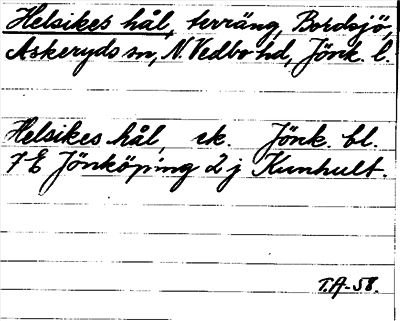 Helsikes hål, terräng, Bordsjö,
Askeryds sn, N. Vedbo hd, Jönk. l.
Helsikes hål, ek. Jönk. bl.
7E Jönköping 2j Kunhult.
T.A-58.